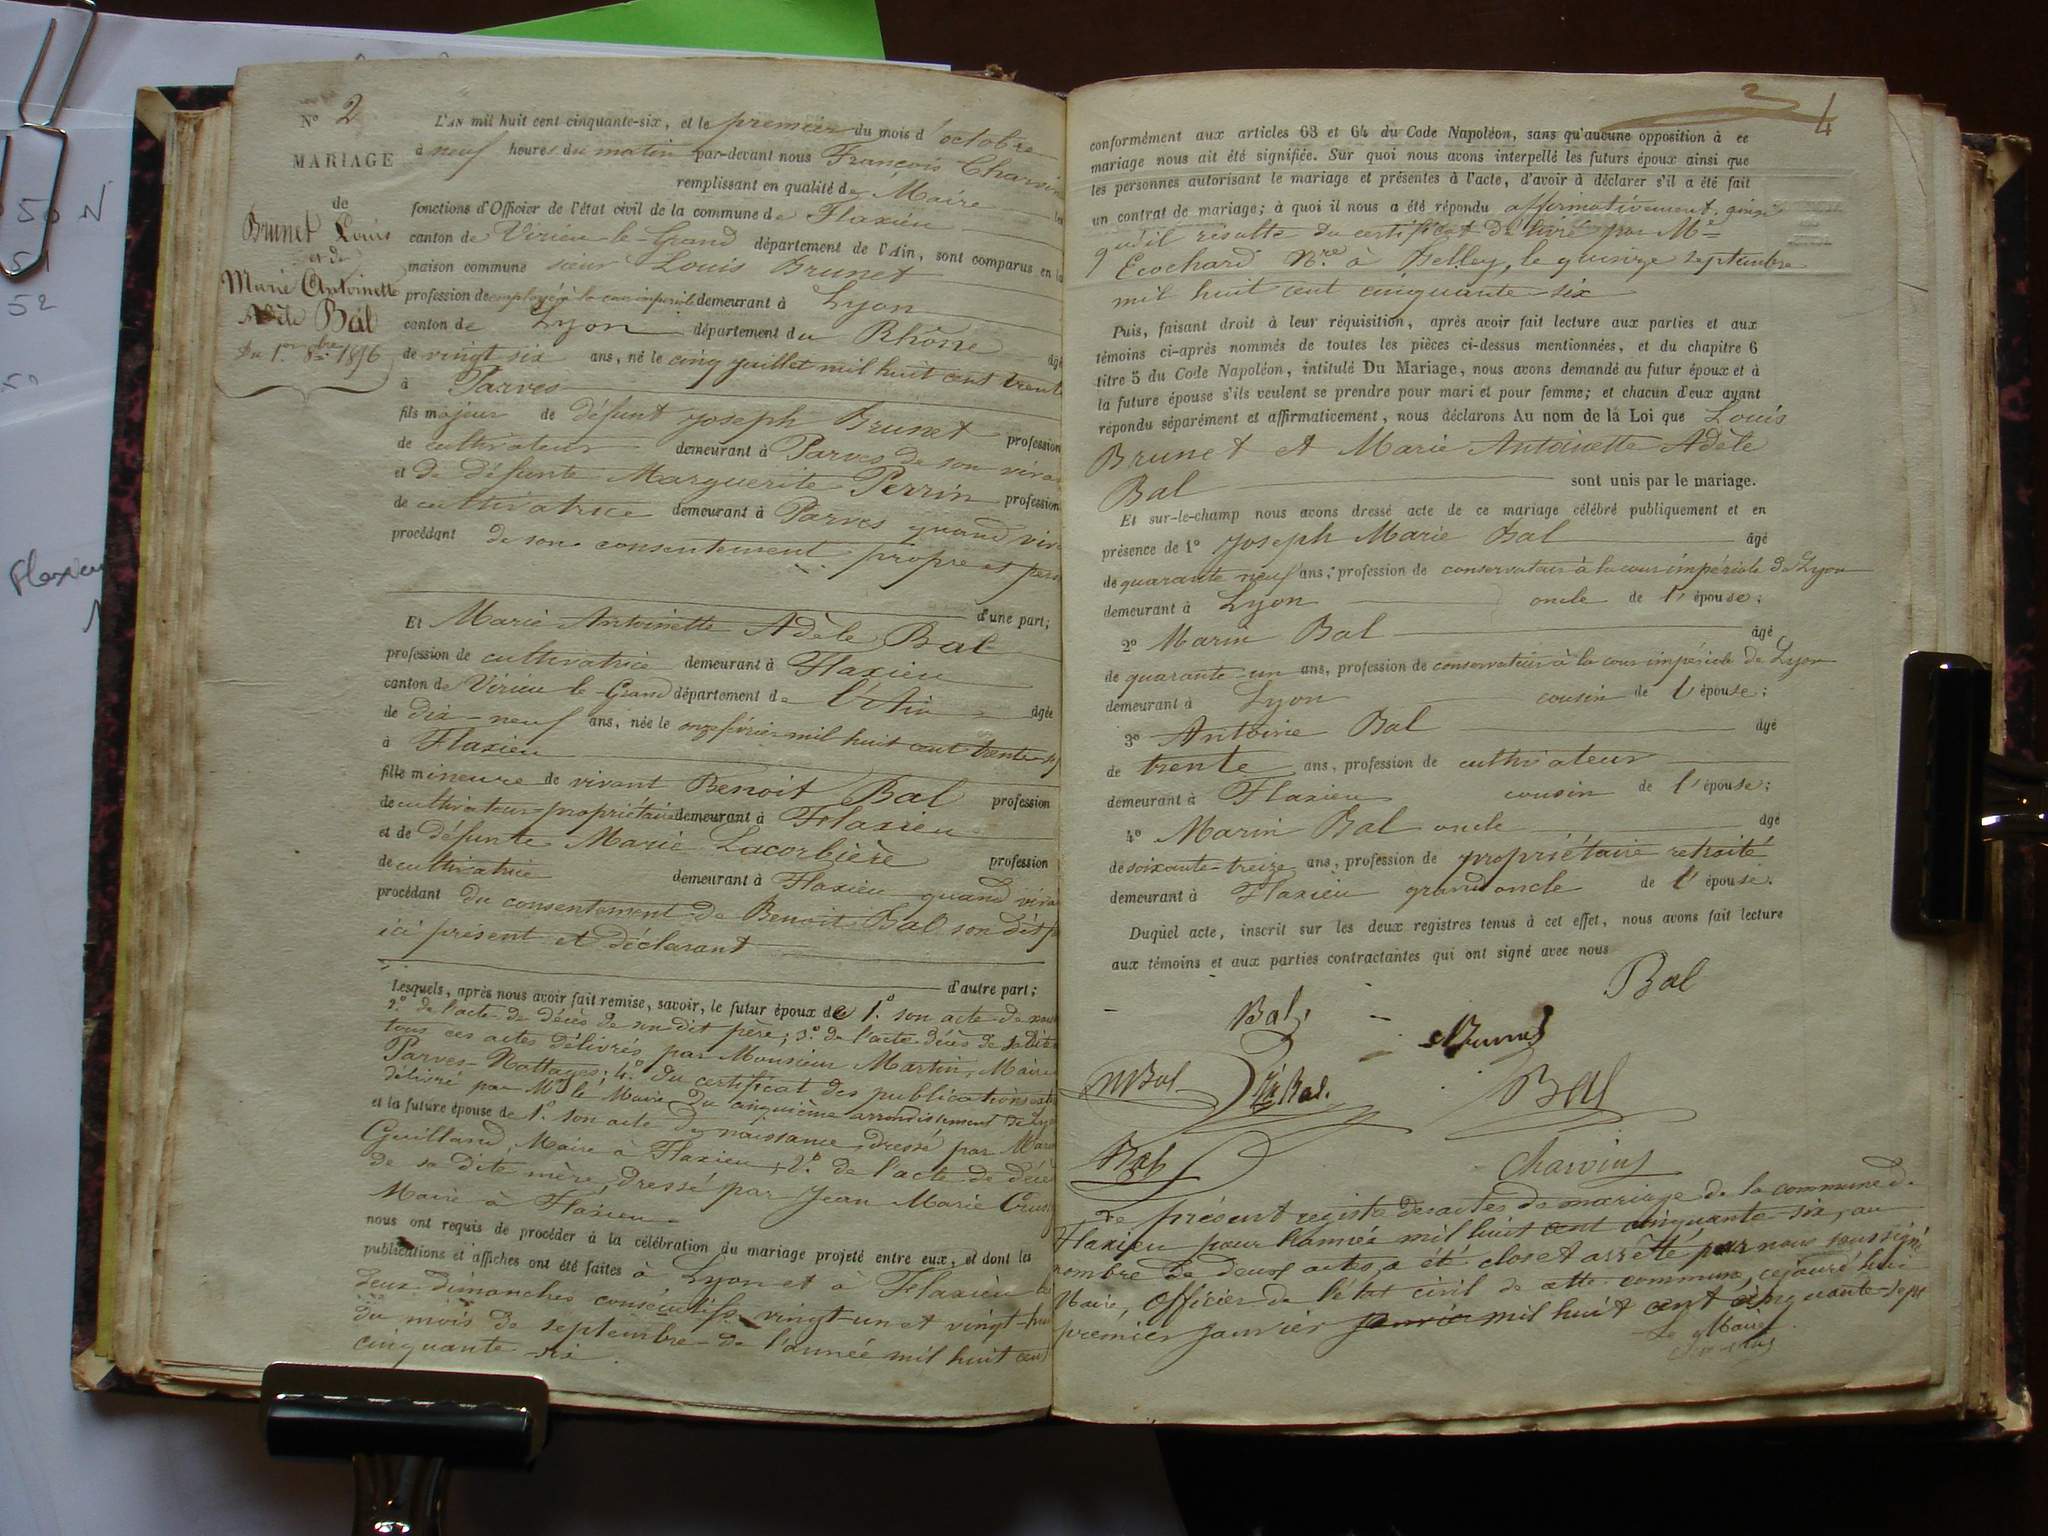 50 N
52
Flaxieu
N° 2
MARIAGE
de
Brunet Louis
et de
Marie Antoinette
Adèle Bal
Du 1er 8bre 1856
L'AN mil huit cent cinquante-six, et le premier du mois d'octobre
à neuf heures du matin par-devant nous François Charvin
remplissant en qualité de Maire les
fonctions d'Officier de l'état civil de la commune de Flaxieu
canton de Virieu-le-Grand département de l'Ain, sont comparus en la
maison commune sieur Louis Brunet
profession de employé à la cour impériale demeurant à Lyon
canton de Lyon département du Rhône âgé
de vingt six ans, né le cinq juillet mil huit cent trente
à Parves
fils majeur de défunt Joseph Brunet profession
de cultivateur demeurant à Parves de son viva
et de défunte Marguerite Perrin profession
de cultivatrice demeurant à Parves quand viv
procédant de son consentement propre et pers
d'une part;
Et Marie Antoinette Adèle Bal
profession de cultivatrice demeurant à Flaxieu
canton de Virieu le-Grand département de l'Ain âgée
de dix-neuf ans, née le onze février mil huit cent trente-s
à Flaxieu
fille mineure de vivant Benoit Bal profession
de cultivateur-propriétaire demeurant à Flaxieu
et de défunte Marie Lacorbière profession
de cultivatrice demeurant à Flaxieu quand viva
procédant du consentement de Benoit Bal son dit p
ici présent et déclarant
d'autre part;
Lesquels, après nous avoir fait remise, savoir, le futur époux de 1° son acte de nais
2° de l'acte de décès de son dit père; 3° de l'acte décès de sa dite
tous ces actes délivrés par Monsieur Martin, Maire
Parves-Nattages; 4° du certificat des publications
délivré par Mr le Maire du cinquième arrondissement de Lyo
et la future épouse de 1° son acte de naissance dressé par
Guilland, Maire à Flaxieu; 2° de l'acte de décè
de sa dite mère, dressé par Jean Marie
Maire à Flaxieu
nous ont requis de procéder à la célébration du mariage projeté entre eux, et dont les
publications et affiches ont été faites à Lyon et à Flaxieu le
deux dimanches consécutifs vingt-un et vingt-hui
du mois de septembre de l'année mil huit cent
cinquante-six.
4
conformément aux articles 63 et 64 du Code Napoléon, sans qu'aucune opposition à ce
mariage nous ait été signifiée. Sur quoi nous avons interpellé les futurs époux ainsi que
les personnes autorisant le mariage et présentes à l'acte, d'avoir à déclarer s'il a été fait
un contrat de mariage; à quoi il nous a été répondu affirmativement ainsi
qu'il résulte du certificat délivré par Me
Ecochard Nre à Belley, le quinze septembre
mil huit cent cinquante-six
Puis, faisant droit à leur réquisition, après avoir fait lecture aux parties et aux
témoins ci-après nommés de toutes les pièces ci-dessus mentionnées, et du chapitre 6
titre 5 du Code Napoléon, intitulé Du Mariage, nous avons demandé au futur époux et à
la future épouse s'ils veulent se prendre pour mari et pour femme; et chacun d'eux ayant
répondu séparément et affirmativement, nous déclarons Au nom de la Loi que Louis
Brunet et Marie Antoinette Adèle
Bal sont unis par le mariage.
Et sur-le-champ nous avons dressé acte de ce mariage célébré publiquement et en
présence de 1° Joseph Marie Bal âgé
de quarante neuf ans, profession de conservateur à la cour impériale de Lyon
demeurant à Lyon oncle de l'épouse;
2° Marin Bal âgé
de quarante-un ans, profession de conservateur à la cour impériale de Lyon
demeurant à Lyon cousin de l'épouse;
3° Antoine Bal âgé
de trente ans, profession de cultivateur
demeurant à Flaxieu cousin de l'épouse;
4° Marin Bal oncle âgé
de soixante-treize ans, profession de propriétaire retraité
demeurant à Flaxieu grand oncle de l'épouse.
Duquel acte, inscrit sur les deux registres tenus à cet effet, nous avons fait lecture
aux témoins et aux parties contractantes qui ont signé avec nous
Bal
Bal
Brunet
MBal
Bal
Bal
Charvin
Le présent registre des actes de mariage de la commune de
Flaxieu pour l'année mil huit cent cinquante-six, au
nombre de deux actes, a été clos et arrêté par nous soussigné
Maire, Officier de l'état civil de cette commune, cejourd'hui
premier janvier janvier mil huit cent cinquante-sept
Le Maire
Charvin